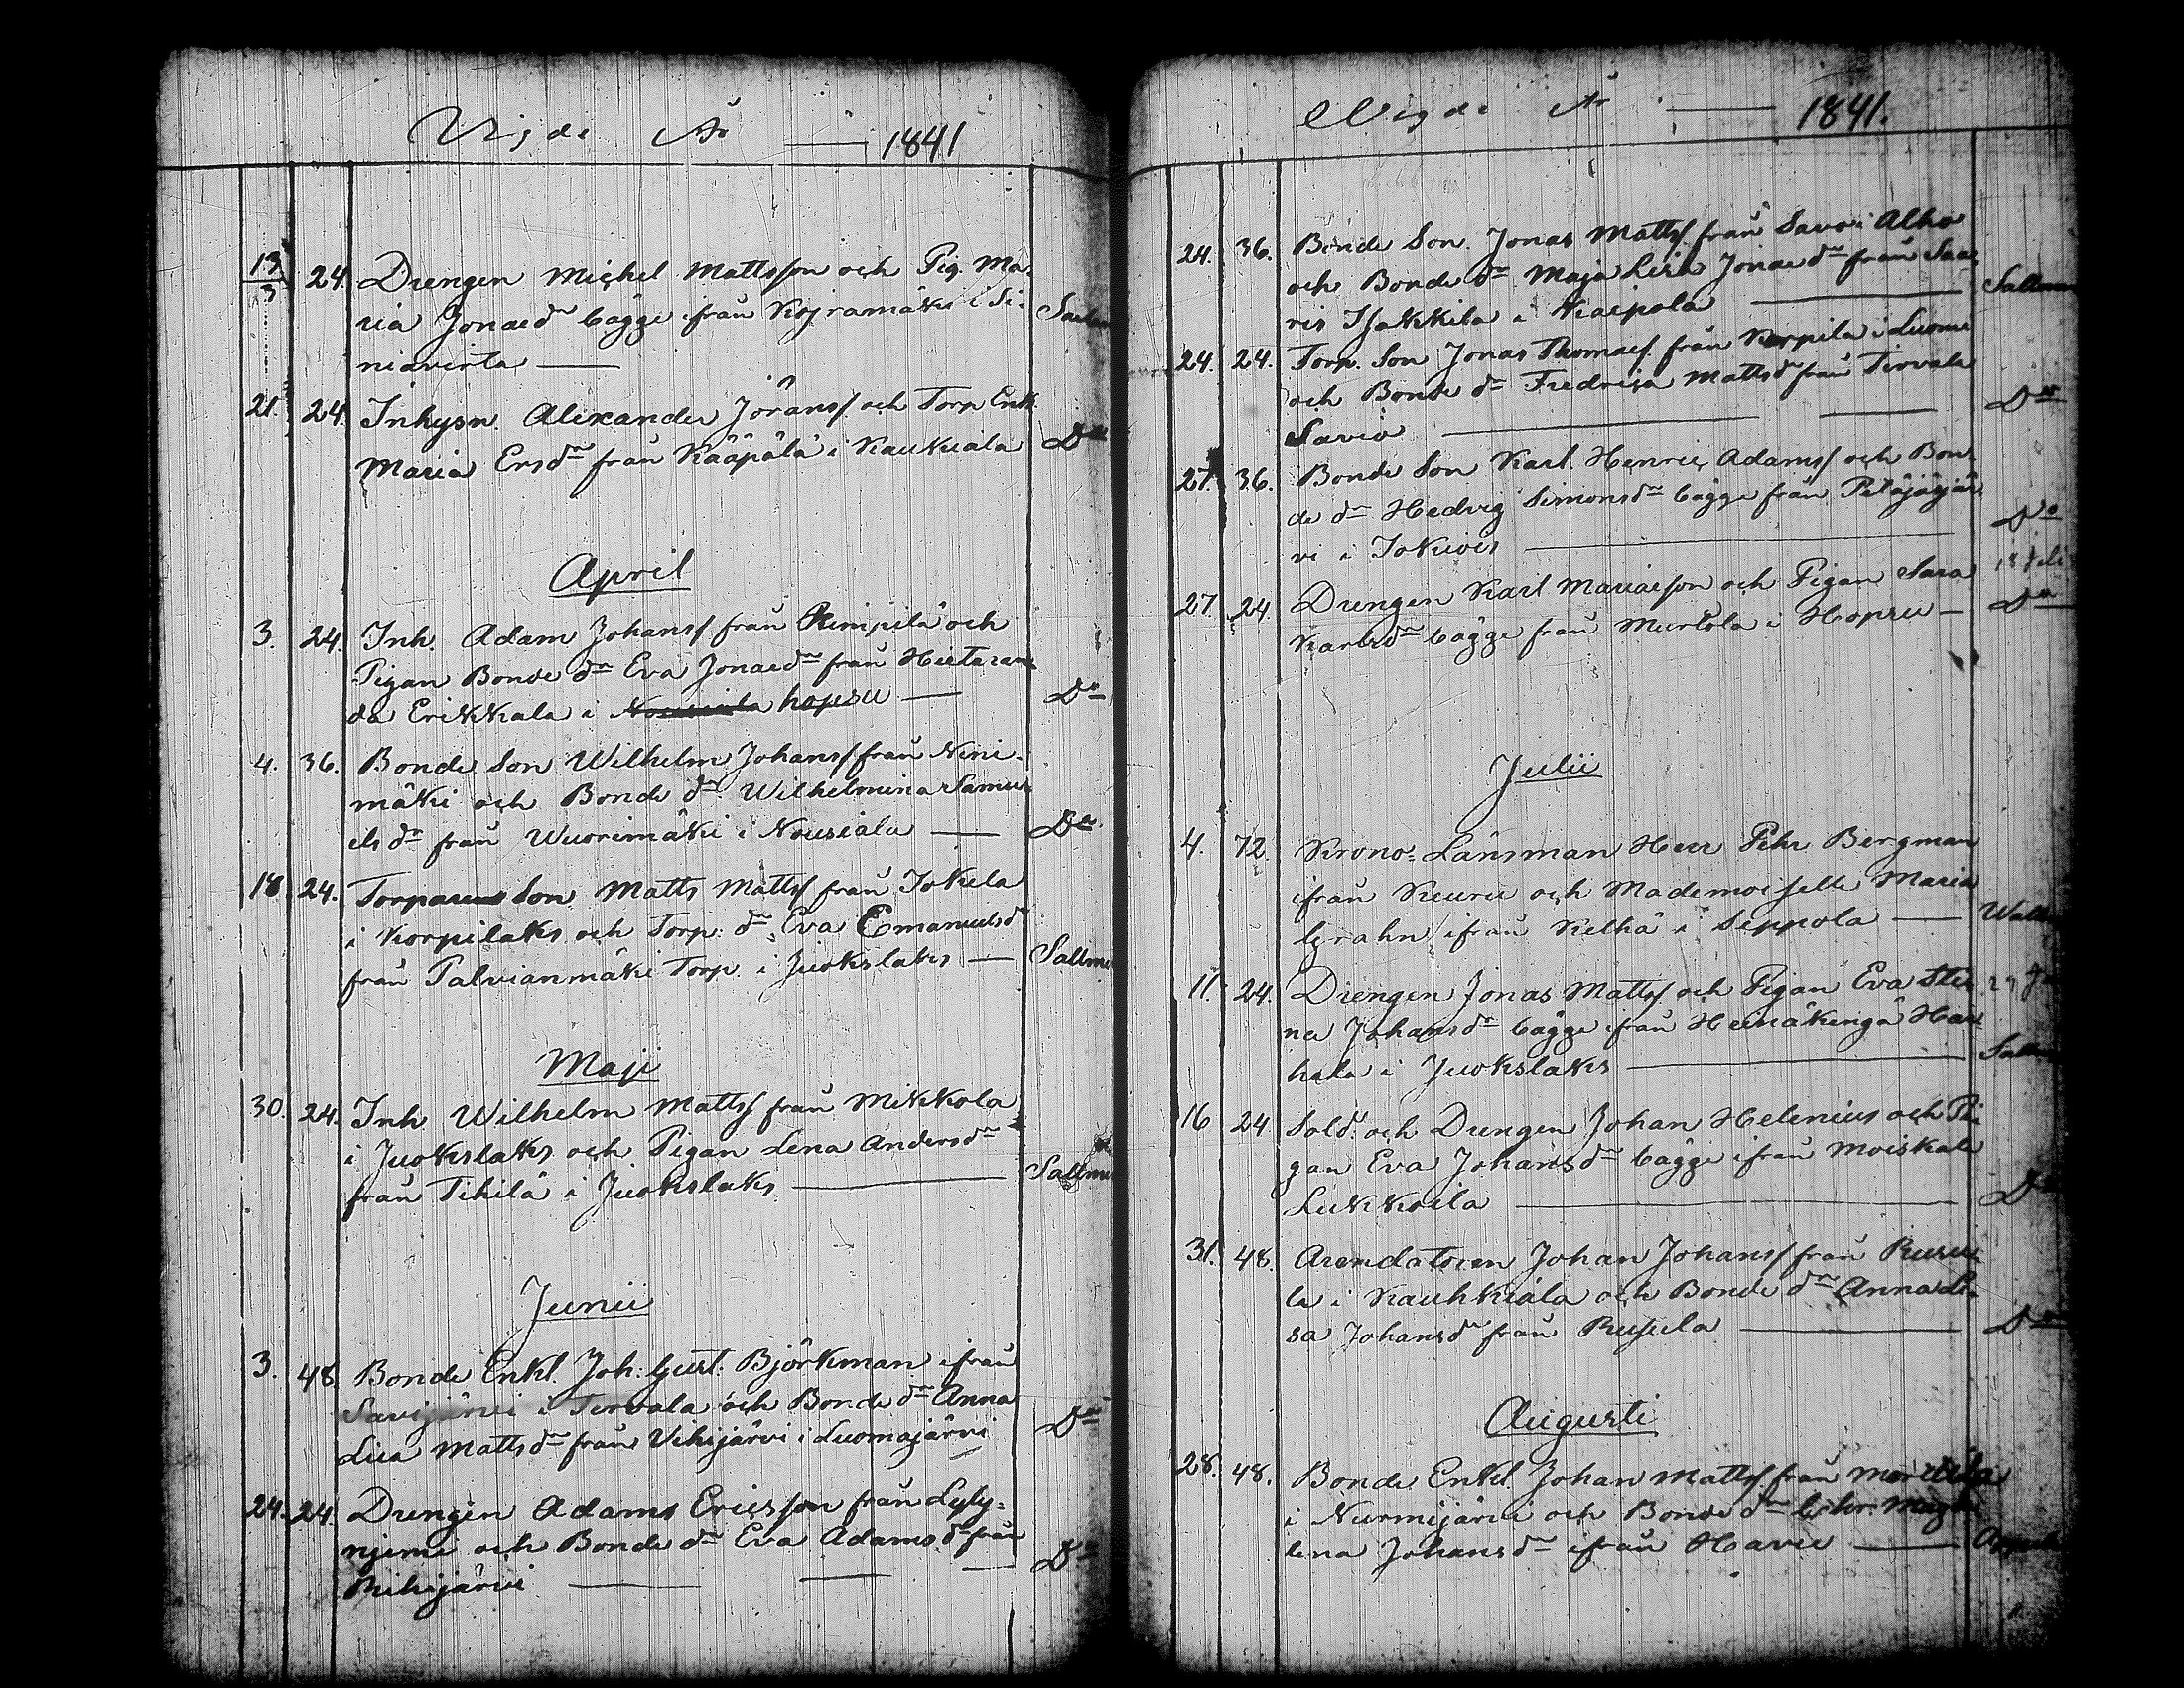 Vigde År — 1841
13/3 24. Drengen Michel Mattsson och Pig. Ma-
ria Jonaedr bägge ifrån Kojramäki i Si-
niavirta — 
21. 24. Inhysn. Alexander Jöranss och Torp Enk.
Maria Ersdr från Kääpälä i Kaukiala Do
April
3. 24. Inh. Adam Johanss från Rimpilä och
Pigan Bonde dr Eva Jonaedr från Hietaran-
da Erikkala i Nousiala hopsu — Do
4. 36. Bonde Son Wilhelm Johanss från Nini-
mäki och Bonde dr Wilhelmina Samu-
els dr från Wuorimäki i Nousiala — Do
18. 24. Torparens Son Matts Mattss från Jokela
i Korpilaks och Torp. dr Eva Emanuelsdr
från Palvianmäki Torp. i Juokslaks — Sallme
Maji
30. 24. Inh Wilhelm Mattss från Mikkola
i Juokslaks och Pigan Lena Andersdr
från Tihilä i Juokslaks — Sallme
Junii
3. 48. Bonde Enkl. Joh: Gust. Björkman ifrån
Savijärvi i Tirvala och Bonde dr Anna
Lisa Mattsdr från Vihijärvi i Luomajärvi Do
24. 24. Drengen Adams Ericsson från Lyly-
njemi och Bonde dr Eva Adams dr från
Rihijärvi — Do
Vigde År — 1841.
24. 36. Bonde Son. Jonas Mattss. från Savoi Alho
och Bonde dr Maja Lisa Jonaedr från Saa-
ris Isakkila i Kaipola — Sallme
24. 24. Torp. Son Jonas Thomass. från Korpila i Luome
och Bonde dr Fredrica Mattsdr från Tirvala
Savio — Do
27. 36. Bonde Son Karl Henric Adamss och Bon-
de dr Hedvig Simonsdr bägge från Petäjäjär-
vi i Jokiois — Do
27. 24. Drengen Karl Mariaeson och Pigan Sara
Karlsdr bägge från Murtola i Hopsu — Do
Julii
4. 72. Krono-Länsman Herr Pehr Bergman
ifrån Keuru och Mademoiselle Maria
Grahn ifrån Kelhä i Seppola —
11. 24. Drengen Jonas Mattss och Pigan Eva Sti-
na Johansdr bägge ifrån Heinäkengä Har-
hala i Juokslaks —
16 24 Sold. och Drengen Johan Helenius och Pi-
gan Eva Johansdr bägge ifrån Moiskala
Lukkoila — Do
31. 48. Arendatoren Johan Johanss från Ruusu-
la i Kauhkiala och Bonde dr Anna Li-
sa Johansdr från Rusula — Do
Augusti
28. 48. Bonde Enkl. Johan Mattss. från
i Nurmijärvi och Bonde dr Chr: Magda-
lena Johansdr ifrån Havu —